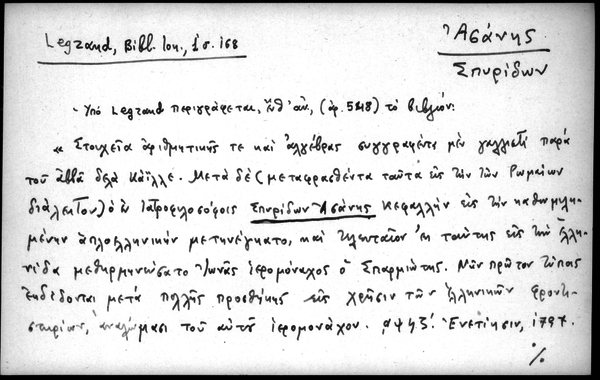 Legrand, Bibl. Ion., 1 σ. 158
Ἀσάνης
Σπυρίδων
- Ὑπὸ Legrand περιγράφεται, ἔνθ' ἀν, (ἀρ. 588) τὸ βιβλίον:
« Στοιχεῖα ἀριθμητικῆς τε καὶ ἀλγέβρας συγγραφέντα μὲν γαλλιστὶ παρὰ
τοῦ ἀββᾶ δελὰ Καΐλλε. Μετὰ δὲ (μεταφρασθέντα ταῦτα εἰς τὴν τῶν Ῥωμαίων
διάλεκτον) ὁ ἐν ἰατροφιλοσόφοις Σπυρίδων Ἀσάνης Κεφαλλὴν εἰς τὴν καθωμιλη-
μένην ἁπλοελληνικὴν μετηνέγκατο, καὶ τελευταῖον ἐκ ταύτης εἰς τὴν ἑλλη-
νίδα μεθηρμηνεύσατο Ἰωνᾶς ἱερομόναχος ὁ Σπαρμιώτης. Νῦν πρῶτον τύποις
ἐκδίδονται μετὰ πολλῆς προσθήκης εἰς χρῆσιν τῶν ἑλληνικῶν φροντι-
στηρίων, ἀναλώμασι τοῦ αὐτοῦ ἱερομονάχου. ͵αψϟζ'. Ἐνετίησιν, 1797.
./.